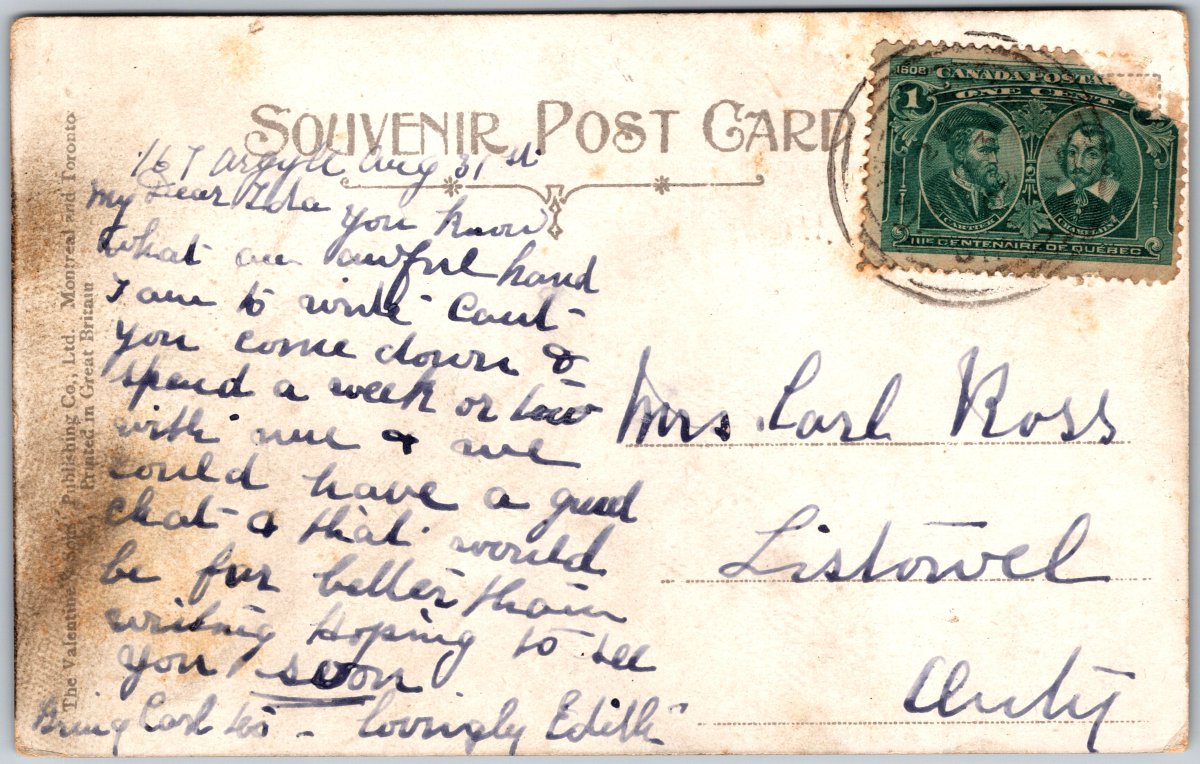 SOUVENIR POST CARD
1608
CANADA POSTAGE
1 ONE CENT
CARTIER
CHAMPLAIN
IIIE CENTENAIRE DE QUÉBEC
167 Argyll Aug 31st
My Dear Ida you know
what an awful hand
I am to write Cant
you come down &
spend a week or two
with me & we
could have a good
chat & that would
be far better than
writing Hoping to see
you soon
Bring Carl to - Lovingly Edith
Mrs. Carl Ross
Listowel
Onty
The Valentine & Sons' Publishing Co., Ltd. Montreal and Toronto
Printed in Great Britain